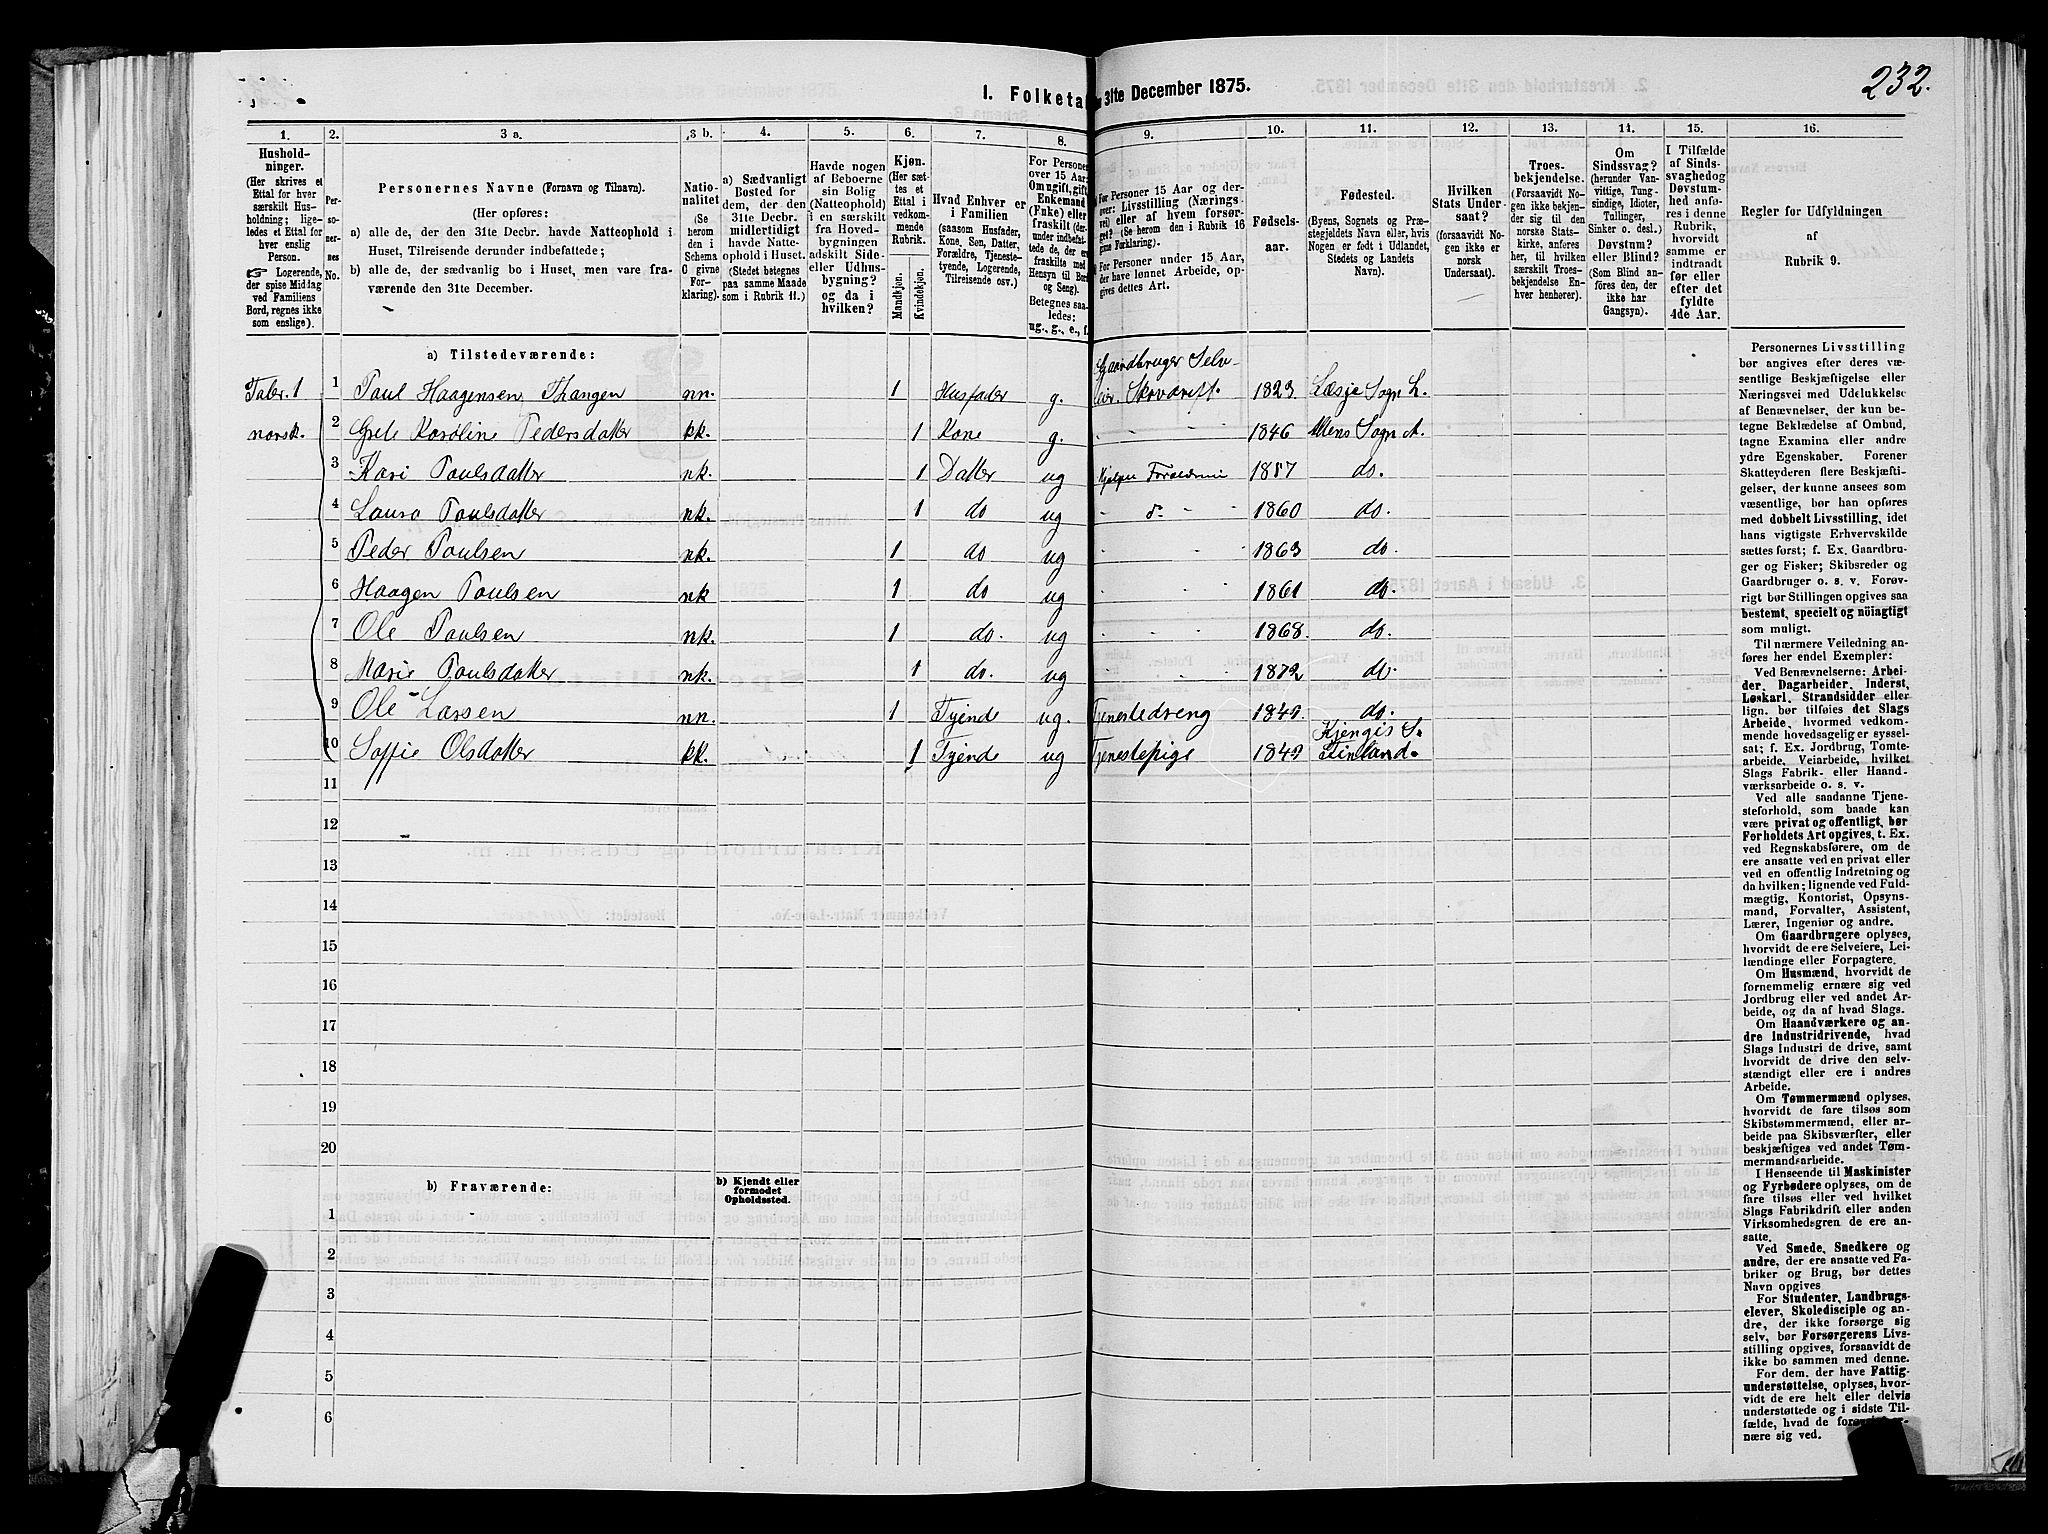 232.
I. Folketa
31te December 1875.
1. 2. 3 a. 3 b. 4. 5. 6. 7. 8. 9. 10. 11. 12. 13. 14. 15. 16.
Hushold-
ninger.
(Her skrives et
Ettal for hver
særskilt Hus-
holdning; lige-
ledes et Ettal for
hver enslig
Person.
☞ Logerende,
der spise Middag
ved Familiens
Bord, regnes ikke
som enslige).
Per-
so-
ner-
nes
No.
Personernes Navne (Fornavn og Tilnavn).
(Her opføres:
a) alle de, der den 31te Decbr. havde Natteophold i
Huset, Tilreisende derunder indbefattede;
b) alle de, der sædvanlig bo i Huset, men vare fra-
værende den 31te December.
Natio-
nalitet
(Se
herom
den i
Schema
C givne
For-
klaring).
a) Sædvanligt
Bosted for
dem, der den
31te Decbr.
midlertidigt
havde Natte-
ophold i Huset.
(Stedet betegnes
paa samme Maade
som i Rubrik 11.)
Havde nogen
af Beboerne
sin Bolig
(Natteophold)
i en særskilt
fra Hoved-
bygningen
adskilt Side-
eller Udhus-
bygning?
og da i
hvilken?
Kjøn.
(Her sæt-
tes et
Ettal i
vedkom-
mende
Rubrik.
Mandkjøn.
Kvindekjøn.
Hvad Enhver er
i Familien
(saasom Husfader,
Kone, Søn, Datter,
Forældre, Tjeneste-
tyende, Logerende,
Tilreisende osv.)
For Personer
over 15 Aar:
Om ugift, gift,
Enkemand
(Enke) eller
fraskilt (der-
under indbefat-
tede de, der ere
fraskilte med
Hensyn til Bord
og Seng).
Betegnes saa-
ledes:
ug., g., e., f.
For Personer 15 Aar og der-
over: Livsstilling (Nærings-
vei) eller af hvem forsør-
get? (Se herom i Rubrik 16
givne Forklaring).
For Personer under 15 Aar,
der have lønnet Arbeide, op-
gives dettes Art.
Fødsels-
aar.
Fødested.
(Byens, Sognets og Præ-
stegjeldets Navn, eller, hvis
Nogen er født i Udlandet,
Stedets og Landets
Navn).
Hvilken
Stats Under-
saat?
(forsaavidt No-
gen ikke er
norsk
Undersaat).
Troes-
bekjendelse.
(Forsaavidt No-
gen ikke bekjen-
der sig til den
norske Stats-
kirke, anføres
her, til hvilken
særskilt Troes-
bekjendelse En-
hver henhører).
Om
Sindssvag?
(herunder Van-
vittige, Tung-
sindige, Idioter,
Tullinger,
Sinker o. desl.)
Døvstum?
eller Blind?
(Som Blind an-
føres den, der
ikke har
Gangsyn).
I Tilfælde
af Sinds-
svaghed og
Døvstum-
hed anfø-
res i denne
Rubrik,
hvorvidt
samme er
indtraadt
før eller
efter det
fyldte
4de Aar.
Regler for Udfyldningen
af
Rubrik 9.
a) Tilstedeværende:
Gaardbruger Selv-
Taler 1 1 Paul Haagensen Thangen nn. 1 Husfader g. eier. Skovdrift. 1823 Læsje Sogn L.
norsk. 2 Grete Karoline Pedersdatter kk. 1 Kone g. 1846 Altens Sogn A.
3 Kari Paulsdatter nk. 1 Datter ug Hjelper Forældrene 1857 do.
4 Laura Paulsdatter nk. 1 do ug " d: " " 1860 do.
5 Peder Paulsen nk. 1 do ug " " " 1863 do.
6 Haagen Paulsen nk 1 do ug " " " 1861 do.
7 Ole Paulsen nk. 1 do. ug " " " 1868. do.
8 Marie Paulsdatter nk. 1 do. ug 1872 do.
9 Ole Larsen nn. 1 Tyende ug. Tjenestedreng 1849. do.
Kjengis S.
10 Soffie Olsdatter kk. 1 Tyende ug Tjenestepige 1849 Finland.
11
12
13
14
15
16
17
18
19
20
b) Fraværende:
b) Kjendt eller
formodet
Opholdssted.
1
2
3
4
5
6
Personernes Livsstilling
bør angives efter deres væ-
sentlige Beskjæftigelse eller
Næringsvei med Udelukkelse
af Benævnelser, der kun be-
tegne Beklædelse af Ombud,
tagne Examina eller andre
ydre Egenskaber. Forener
Skatteyderen flere Beskjæfti-
gelser, der kunne ansees som
væsentlige, bør han opføres
med dobbelt Livsstilling, idet
hans vigtigste Erhvervskilde
sættes først; f. Ex. Gaardbru-
ger og Fisker; Skibsreder og
Gaardbruger o. s. v. Forøv-
rigt bør Stillingen opgives saa
bestemt, specielt og nöiagtigt
som muligt.
Til nærmere Veiledning an-
føres her endel Exempler:
Ved Benævnelserne: Arbei-
der, Dagarbeider, Inderst,
Løskarl, Strandsidder eller
lign. bør tilføies det Slags
Arbeide, hvormed vedkom-
mende hovedsagelig er syssel-
sat; f. Ex. Jordbrug, Tomte-
arbeide, Veiarbeide, hvilket
Slags Fabrik- eller Haand-
værksarbeide o. s. v.
Ved alle saadanne Tjene-
steforhold, som baade kan
være privat og offentligt, bør
Forholdets Art opgives, t. Ex.
ved Regnskabsførere, om de
ere ansatte ved en privat eller
ved en offentlig Indretning og
da hvilken; lignende ved Fuld-
mægtig, Kontorist, Opsyns-
mand, Forvalter, Assistent,
Lærer, Ingeniør og andre.
Om Gaardbrugere oplyses,
hvorvidt de ere Selveiere, Lei-
lændinge eller Forpagtere.
Om Husmænd, hvorvidt de
fornemmelig ernære sig ved
Jordbrug eller ved andet Ar-
beide, og da af hvad Slags.
Om Haandværkere og an-
dre Industridrivende, hvad
Slags Industri de drive, samt
hvorvidt de drive den selv-
stændigt eller ere i andres
Arbeide.
Om Tømmermænd oplyses,
hvorvidt de fare tilsøs som
Skibstømmermænd, eller ar-
beide paa Skibsværfter, eller
beskjæftiges ved andet Tøm-
mermandsarbeide.
I Henseende til Maskinister
og Fyrbødere oplyses, om de
fare tilsøs eller ved hvilket
Slags Fabrikdrift eller anden
Virksomhedsgren de ere an-
satte.
Ved Smede, Snedkere og
andre, der ere ansatte ved Fa-
briker og Brug, bør dettes
Navn opgives
For Studenter, Landbrugs-
elever, Skoledisciple og an-
dre, der ikke forsørge sig
selv, bør Forsørgerens Livs-
stilling opgives, forsaavidt de
ikke bo sammen med denne.
For dem, der have Fattig-
understøttelse, oplyses, hvor-
vidt de ere helt eller delvis
understøttede og i sidste Til-
fælde, hvad de
nære sig ved.